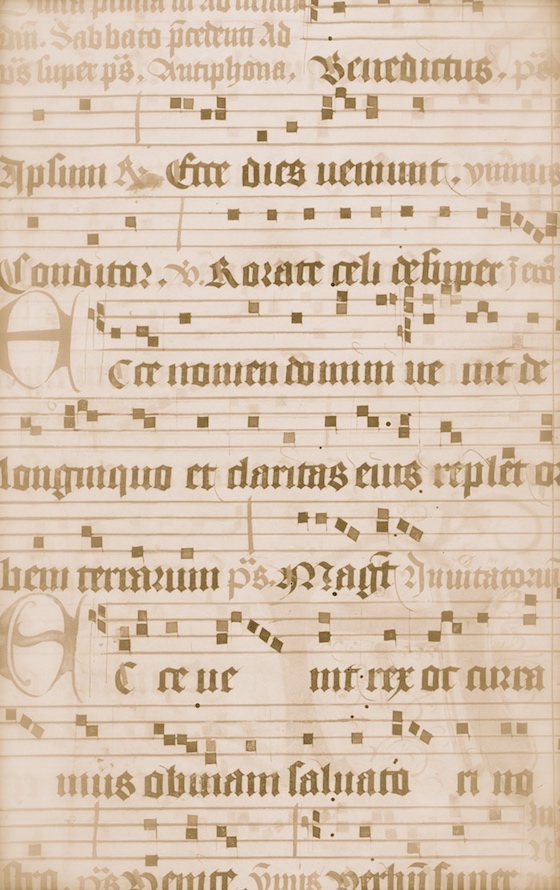 dm̄. Sabbato p̄cedenti Ad
p̄s super p̄s. Antiphona. Benedictus. p̄s
Ipsum R. Ecce dies ueniunt.
Conditor. v. Rorate celi desuper
Ecce nomen domini ue nit de
longinquo et claritas eius replet or
bem terrarum p̄s. Magt̄ Inuitatoriū
Ecce ue nit rex oc curra
mus obuiam saluato ri no
stro. p̄s Venite. Verbū super